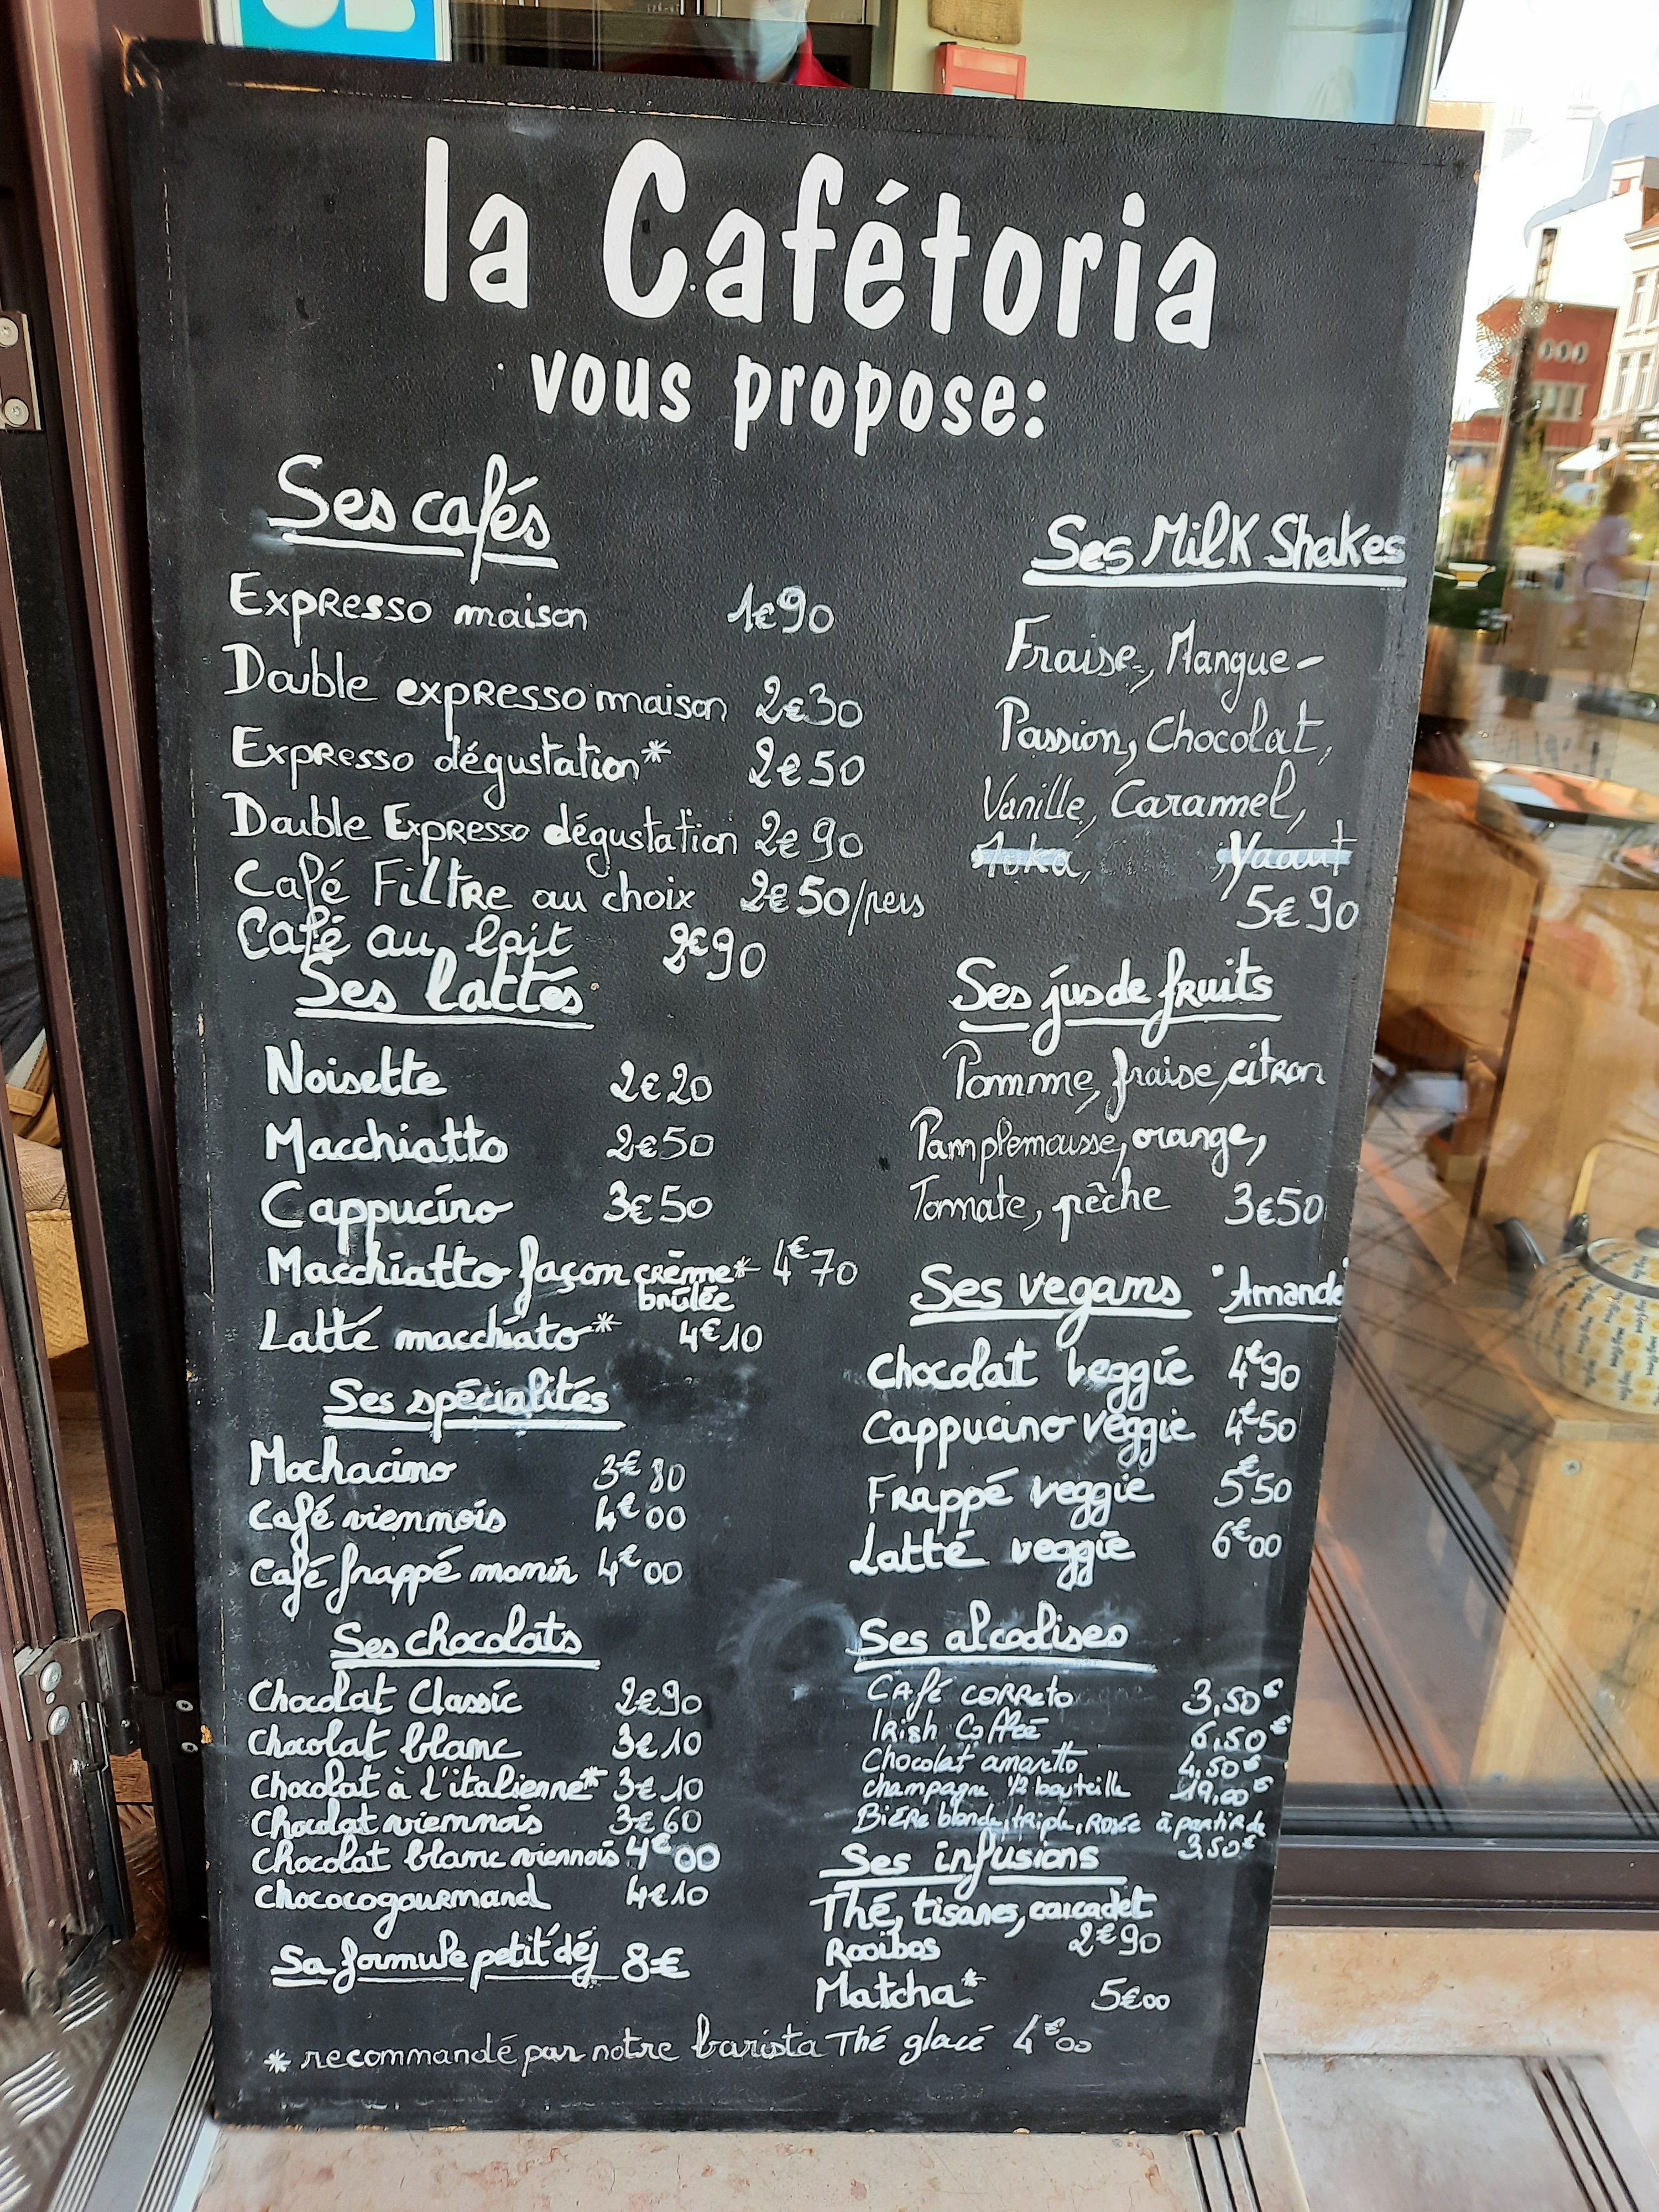 la Cafétoria
vous propose:
Ses cafés
Expresso maison 1€90
Double expresso maison 2€30
Expresso dégustation* 2€50
Double Expresso dégustation 2€90
Café Filtre au choix 2€50/pers
Café au lait 2€90
Ses lattés
Noisette 2€20
Macchiatto 2€50
Cappucino 3€50
Macchiatto façon crème* 4€70
brûlée
Latté macchiato* 4€10
Ses spécialités
Mochacino 3€80
Café viennois 4€00
Café frappé 4€00
Ses chocolats
Chocolat Classic 2€90
Chocolat blanc 3€10
Chocolat à l'italienne* 3€10
Chocolat viennois 3€60
Chocolat blanc viennois 4€00
Chococogourmand 4€10
Sa formule petit déj 8€
Ses Milk Shakes
Fraise, Mangue-
Passion, Chocolat,
Vanille, Caramel,
Moka, Yaourt
5€90
Ses jus de fruits
Pomme, fraise, citron
Pamplemousse, orange,
Tomate, pêche 3€50
Ses vegans "Amande"
Chocolat veggie 4€90
Cappucino veggie 4€50
Frappé veggie 5€50
Latté veggie 6€00
Ses alcolises
Café correto 3,50€
Irish Coffee 6,50€
Chocolat amaretto 4,50€
champagne 1/2 bouteille 19,00€
Bière blonde, triple, rosée à partir de
3,50€
Ses infusions
Thé, tisanes, carcadet
Rooibos 2€90
Matcha* 5€00
* recommandé par notre barista Thé glacé 4€00